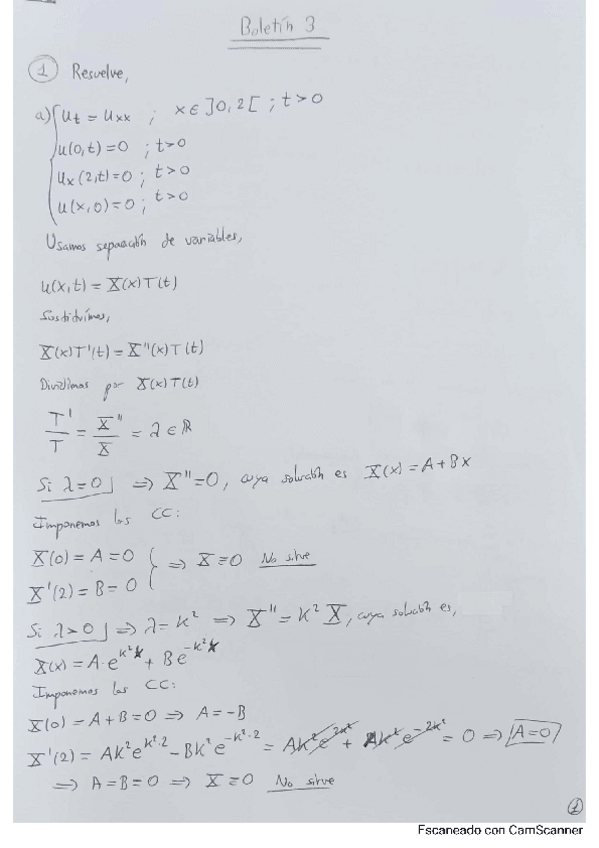 Boletín 3
① Resuelve,
a) { u_t = u_xx ; x ∈ ]0,2[ ; t>0
u(0,t)=0 ; t>0
u_x(2,t)=0 ; t>0
u(x,0)=0 ; t>0
Usamos separación de variables,
u(x,t) = X(x)T(t)
Sustituimos,
X(x)T'(t) = X''(x)T(t)
Dividimos por X(x)T(t)
T'/T = X''/X = λ ∈ ℝ
Si λ=0 ⇒ X''=0, cuya solución es X(x) = A+Bx
Imponemos las CC:
X(0) = A = 0
X'(2) = B = 0 } ⇒ X≡0 No sirve
Si λ>0 ⇒ λ=K² ⇒ X''=K²X, cuya solución es,
X(x) = A·e^{K²x} + Be^{-K²x}
Imponemos las CC:
X(0) = A+B=0 ⇒ A=-B
X'(2) = AK²e^{K²·2} - BK²e^{-K²·2} = AK²e^{2K²} + AK²e^{-2K²} = 0 ⇒ A=0
⇒ A=B=0 ⇒ X≡0 No sirve
①
Escaneado con CamScanner